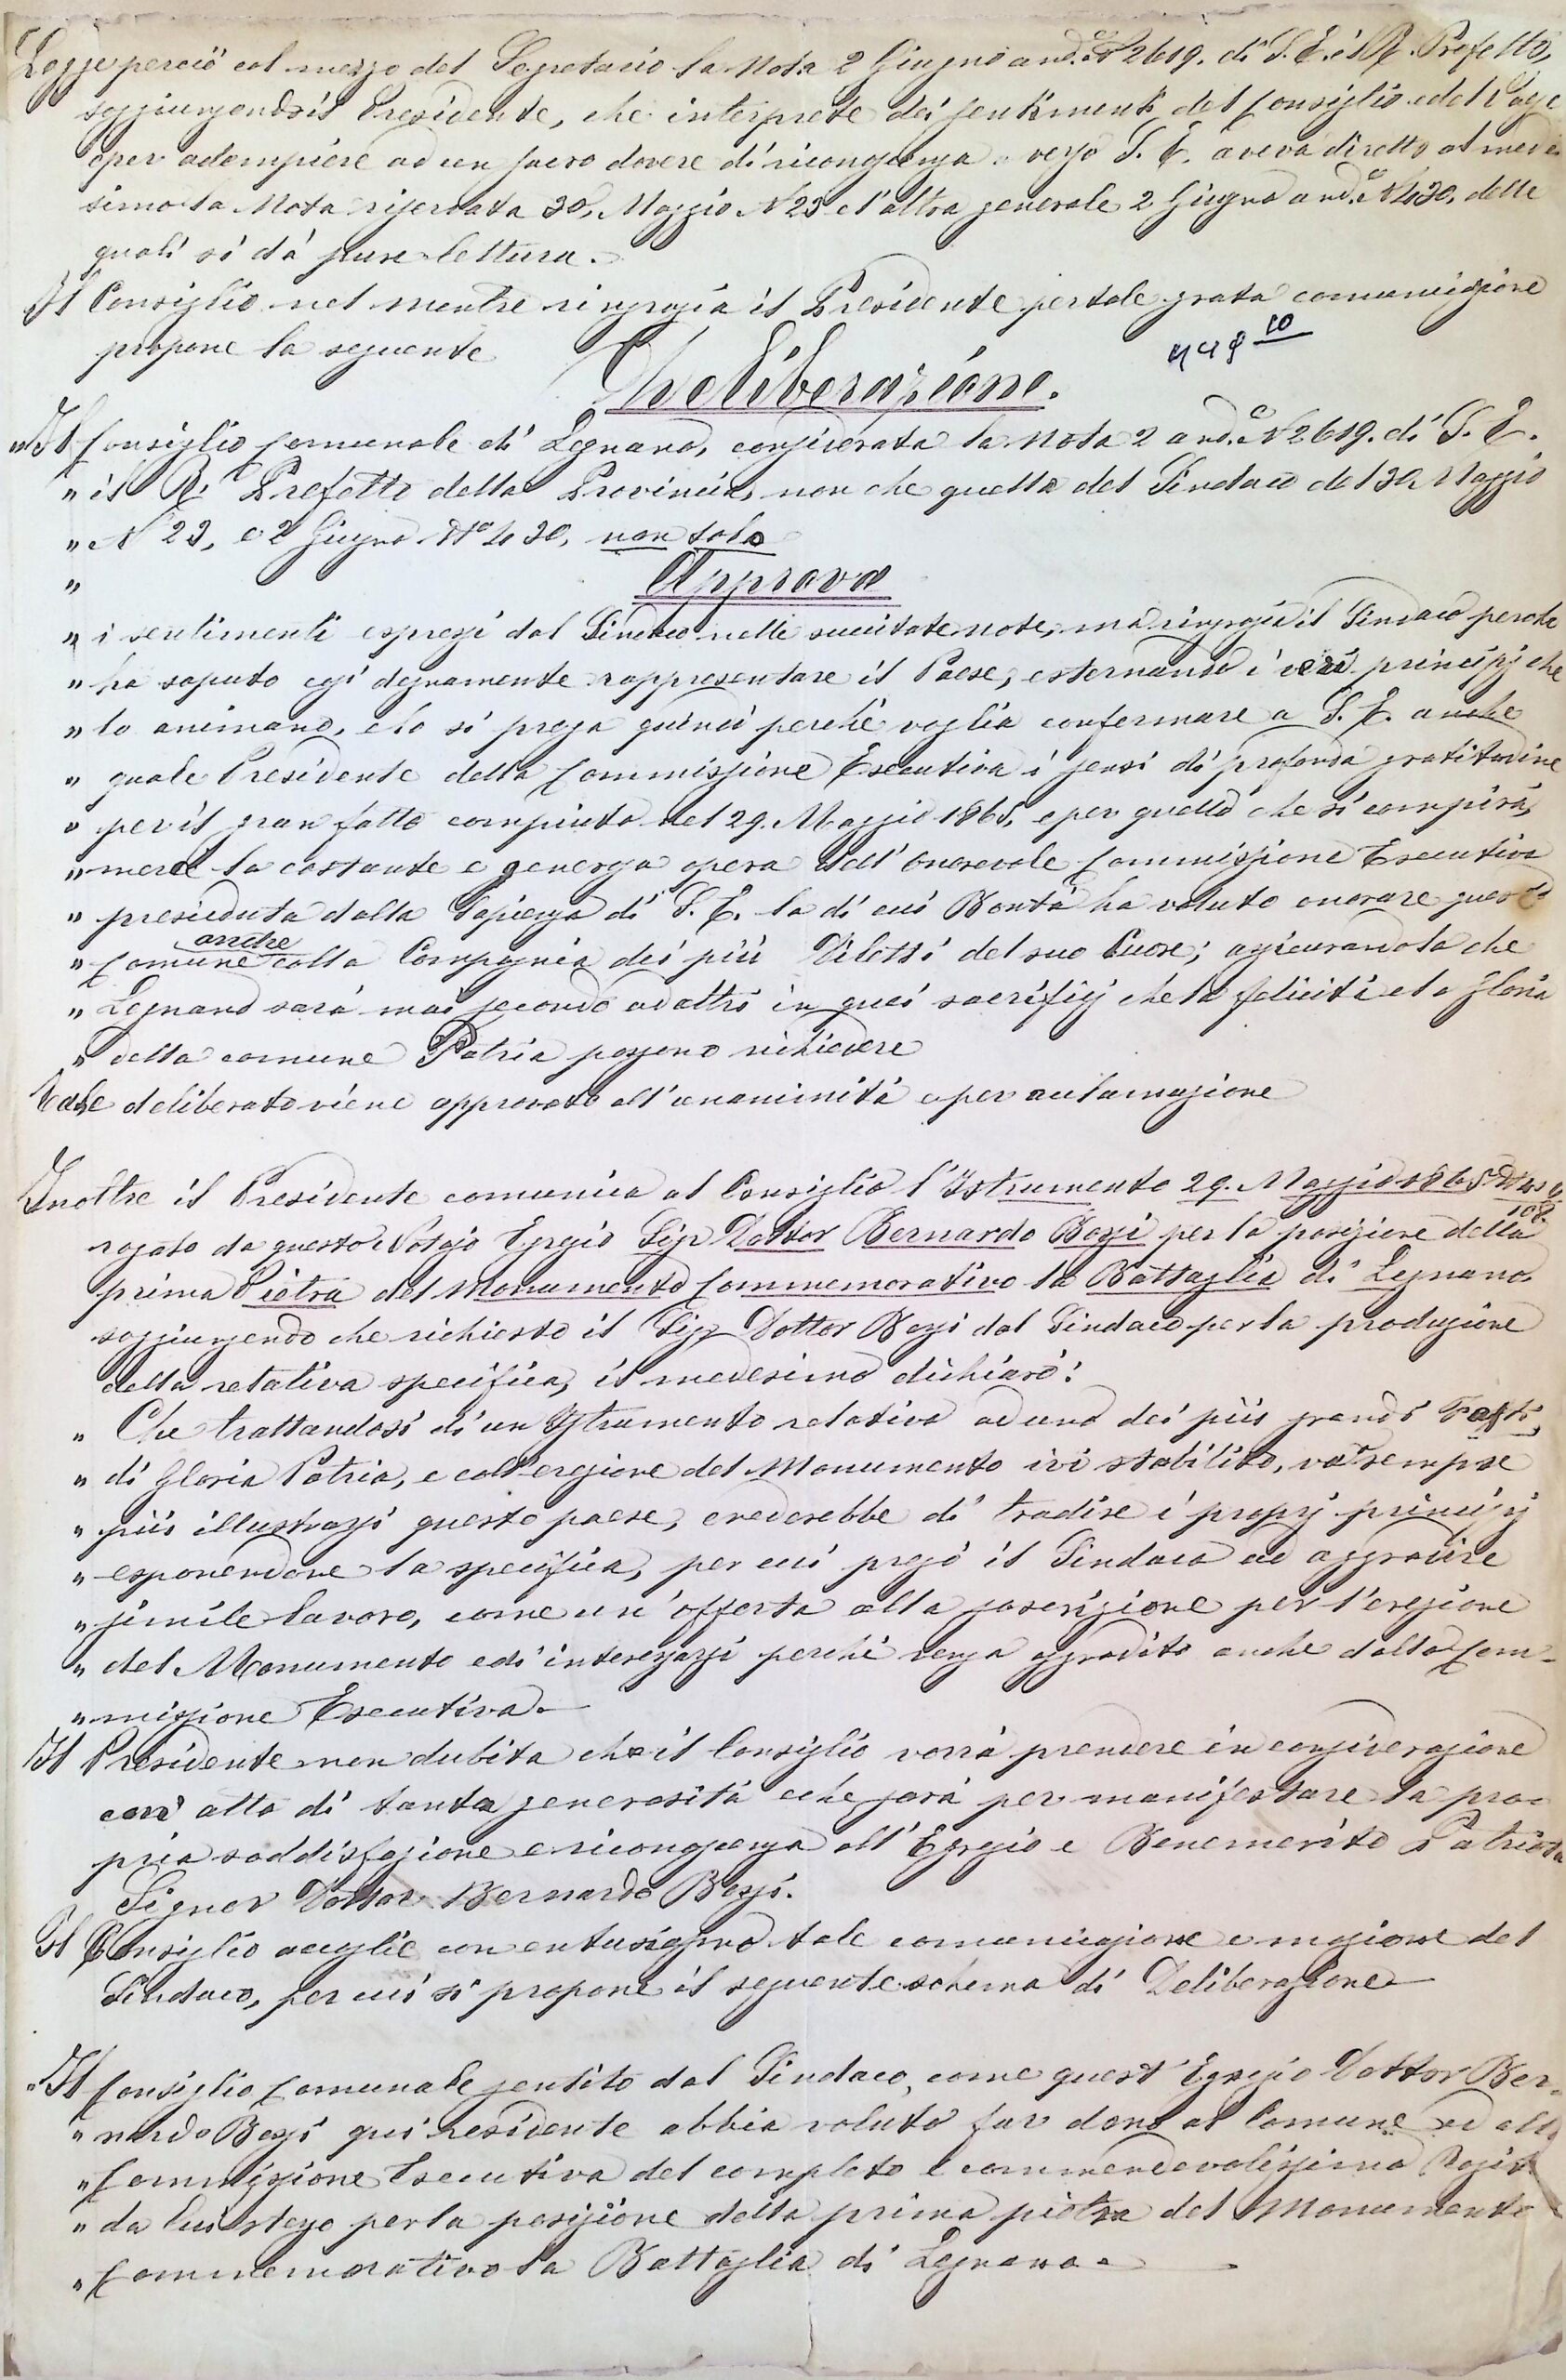 Legge perciò col mezzo del Segretario la Nota 2 Giugno and.e N 2619. di S. E. il R. Prefetto,
soggiungendo il Presidente, che interprete dei sentimenti del Consiglio e del Paese
e per adempiere ad un sacro dovere di riconoscenza verso S. E. aveva diretto al mede
simo la Nota riservata 30, Maggio N 23 e l'altra generale 2 Giugno and.e N 430, delle
quali si dà pure lettura.
Il Consiglio nel mentre ringrazia il Presidente per tale grata comunicazione
propone la seguente
Deliberazione.
"Il Consiglio Comunale di Legnano, considerata la Nota 2 and.e N 2619. di S. E.
" il R. Prefetto della Provincia, non che quella del Sindaco del 30 Maggio
" N 23, e 2 Giugno N° 430, non solo
" Approva
" i sentimenti espressi dal Sindaco nelle succitate note, ma ringrazia il Sindaco perchè
" ha saputo così degnamente rappresentare il Paese, esternando i veri principj che
" lo animano, e lo si prega quindi perchè voglia confermare a S. E. anche
" quale Presidente della Commissione Esecutiva i sensi di profonda gratitudine
" per il gran fatto compiuto nel 29. Maggio 1865, e per quello che si compirà,
" mercè la costante e generosa opera dell'Onorevole Commissione Esecutiva
" presieduta dalla Sapienza di S. E. la di cui Bontà ha voluto onorare questo
anche
" Comune colla Compagnia dei più Diletti del suo Cuore; assicurandola che
" Legnano sarà mai secondo ad altri in quei sacrifizj che la felicità e la Gloria
" della comune Patria possono richiedere
Tale deliberato viene approvato all'unanimità e per acclamazione
Inoltre il Presidente comunica al Consiglio l'Istrumento 29. Maggio 1865
108
rogato da questo Notajo Egregio Sig.r Dottor Bernardo Bossi per la posizione della
prima Pietra del Monumento Commemorativo la Battaglia di Legnano
soggiungendo che richiesto il Sig.r Dottor Bossi dal Sindaco per la produzione
della relativa specifica, il medesimo dichiarò:
" Che trattandosi di un Istrumento relativo ad uno dei più grandi Fasti,
" di Gloria Patria, e coll'erezione del Monumento ivi stabilito, va sempre
" più illustrarsi questo paese, crederebbe di tradire i proprj principj
" esponendone la specifica, per cui pregò il Sindaco ad aggradire
" simile lavoro, come un'offerta alla soscrizione per l'erezione
" del Monumento e di interessarsi perchè venga aggradito anche dalla Com-
" missione Esecutiva.
Il Presidente non dubita che il Consiglio vorrà prendere in considerazione
così atto di tanta generosità e che sarà per manifestare la pro-
pria soddisfazione e riconoscenza all'Egregio e Benemerito Patriota
Signor Dottor Bernardo Bossi.
Il Consiglio accoglie con entusiasmo tale comunicazione e mozione del
Sindaco, per cui si propone il seguente schema di Deliberazione
" Il Consiglio Comunale sentito dal Sindaco, come quest'Egregio Dottor Ber-
" nardo Bossi qui residente abbia voluto far dono al Comune ed alla
" Commissione Esecutiva del completo e commendevolissimo Rogito
" da lui steso per la posizione della prima pietra del Monumento
" Commemorativo la Battaglia di Legnano.